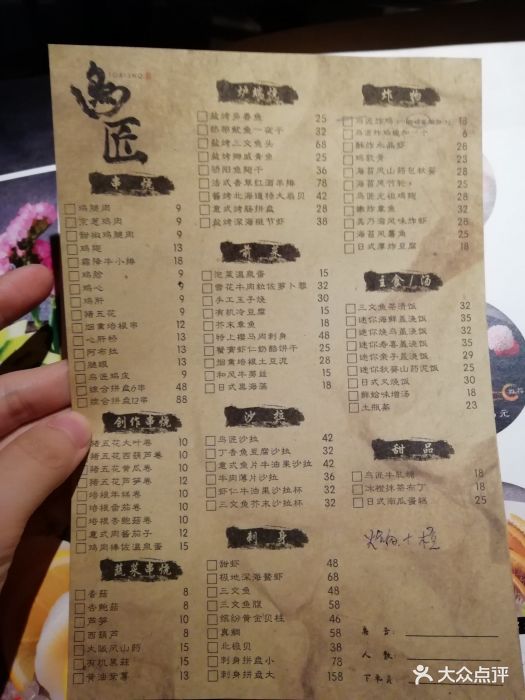 鸟匠
串烧
鸡腿肉 9
京葱鸡肉 9
甜椒鸡腿肉 9
鸡翅 13
霜降牛小排 18
鸡胗 9
鸡心 9
鸡肝 9
猪五花 9
烟熏培根串 12
心肝桥 13
阿布拉 13
腿眼 13
鸟匠鸡皮 9
综合拼盘6串 48
综合拼盘12串 88
创作串烧
猪五花大叶卷 10
猪五花西葫芦卷 10
猪五花黄瓜卷 10
猪五花芦笋卷 12
培根年糕卷 10
培根番茄卷 10
培根杏鲍菇卷 10
意式肉酱茄子 10
鸡肉棒佐温泉蛋 15
蔬菜串烧
香菇 8
杏鲍菇 8
芦笋 9
西葫芦 8
大阪风山药 15
有机黑菇 15
黄油紫薯 13
炉端烧
盐烤多春鱼 25
奶那鱿鱼一夜干 32
盐烤三文鱼头 68
盐烤挪威青鱼 25
骄阳鱼腕干 36
法式香草红酒羊排 78
酱烤北海道特大扇贝 42
意式烤肠拼盘 28
盐烤深海斑节虾 38
前菜
泡菜温泉蛋 15
雪花牛肉粒佐萝卜蓉 32
手工玉子烧 30
有机冷豆腐 15
芥末章鱼 18
特上樱马肉刺身 48
蟹膏虾仁奶酪饼干 25
烟熏培根土豆泥 28
和风牛蒡丝 15
日式黑海藻 18
沙拉
鸟匠沙拉 42
丁香鱼豆腐沙拉 32
意式鱼片牛油果沙拉 42
牛肉薄片沙拉 36
虾仁牛油果沙拉杯 32
三文鱼芥末沙拉杯 32
刺身
甜虾 48
极地深海鳌虾 68
三文鱼 48
三文鱼腹 58
缤纷黄金贝柱 46
真鲷 58
北极贝 38
刺身拼盘小 78
刺身拼盘大 158
炸物
鸟匠炸鸡 18
鸟匠炸鸡追加一个 6
酥炸水晶虾 28
鸡软骨 23
海苔风山药包秋葵 28
海苔风竹轮 28
鸟匠元祖鸡翅 28
嫩炸章鱼 28
真乃滴风味炸虾 38
海苔风薯角 28
日式厚炸豆腐 18
主食/汤
三文鱼茶渍饭 32
迷你海鲜盖浇饭 35
迷你烧鸟盖浇饭 32
迷你寿喜盖浇饭 35
迷你亲子盖浇饭 29
迷你秋葵山药泥饭 32
日式叉烧饭 30
鲜蛤味增汤 18
土瓶蒸 23
甜品
鸟匠牛轧糖 18
冰橙抹茶布丁 18
日式南瓜蛋糕 25
桌台:
人数:
下单员
大众点评